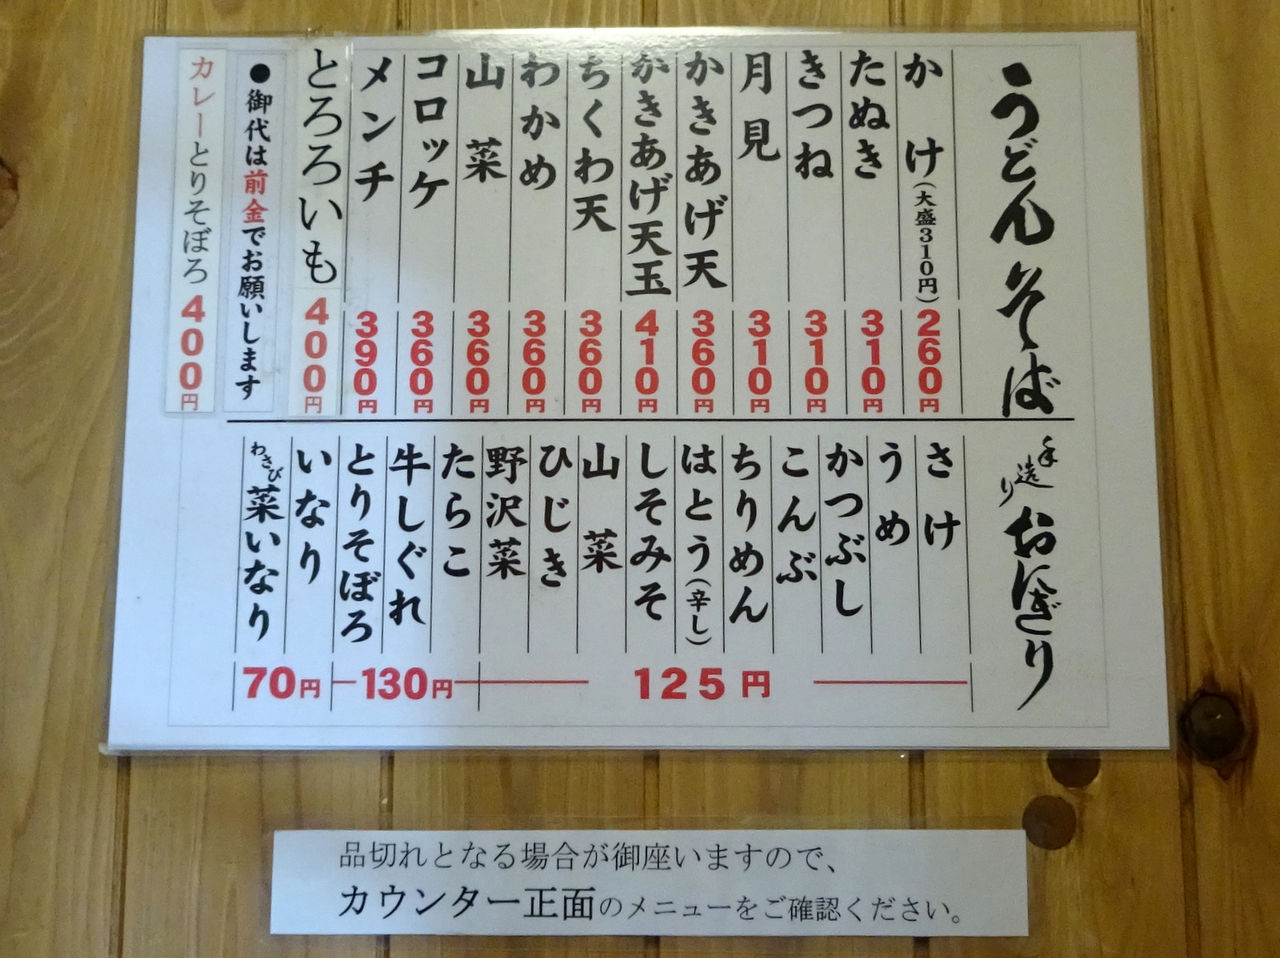 うどん そば
かけ(大盛310円) 260円
たぬき 310円
きつね 310円
月見 310円
かきあげ天 360円
かきあげ天玉 410円
ちくわ天 360円
わかめ 360円
山菜 360円
コロッケ 360円
メンチ 390円
とろろいも 400円
●御代は前金でお願いします
カレーとりそぼろ 400円
手造り おにぎり
さけ
うめ
かつぶし
こんぶ
ちりめん
はとう(辛し)
しそみそ
山菜
ひじき
野沢菜
125円
たらこ
牛しぐれ
とりそぼろ
130円
いなり
わさび菜いなり
70円
品切れとなる場合が御座いますので、
カウンター正面のメニューをご確認ください。